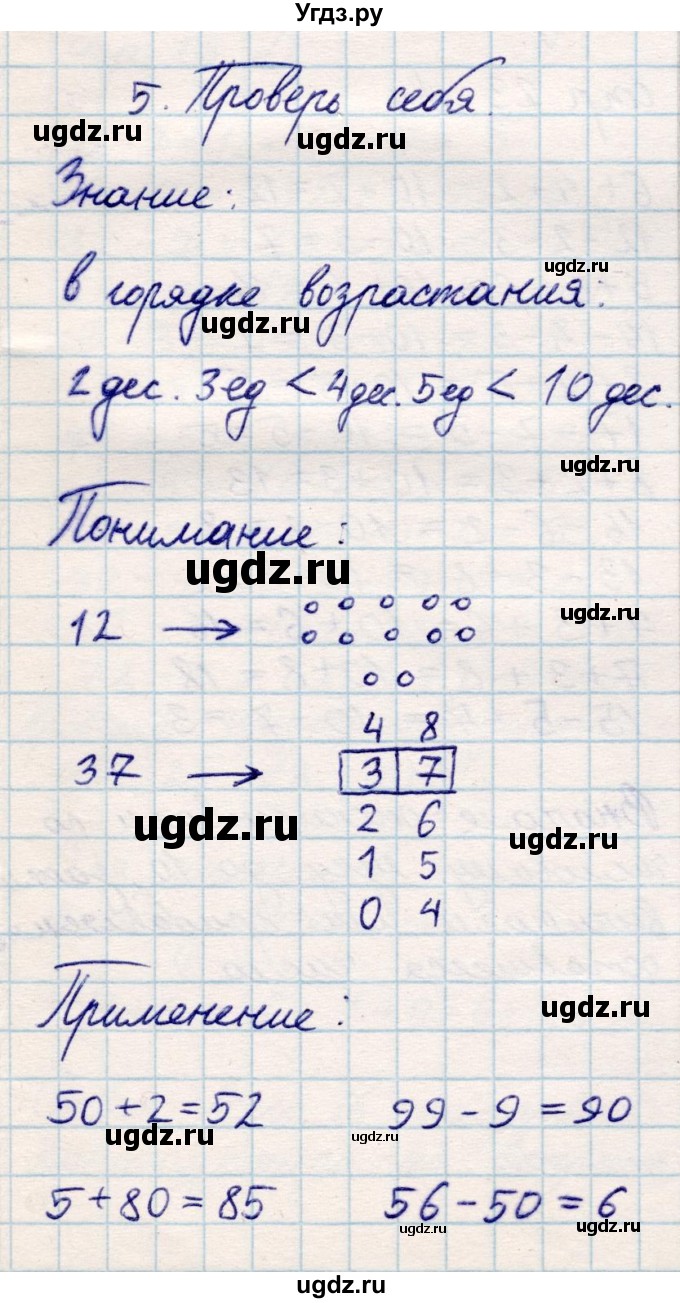 Угдз.ру
5. Проверь себя.
ugdz.ru
ugdz.ru
Знание:
ugdz.ru
в порядке возрастания:
ugdz.ru
2 дес. 3 ед < 4 дес. 5 ед < 10 дес.
ugdz.ru
Понимание:
ugdz.ru
12 →
ugdz.ru
4 8
37 → 3 7
ugdz.ru
2 6
ugdz.ru
1 5
0 4
Применение:
ugdz.ru
50 + 2 = 52 99 - 9 = 90
ugdz.ru
ugdz.ru
5 + 80 = 85 56 - 50 = 6
ugdz.ru
ugdz.ru
ugdz.ru